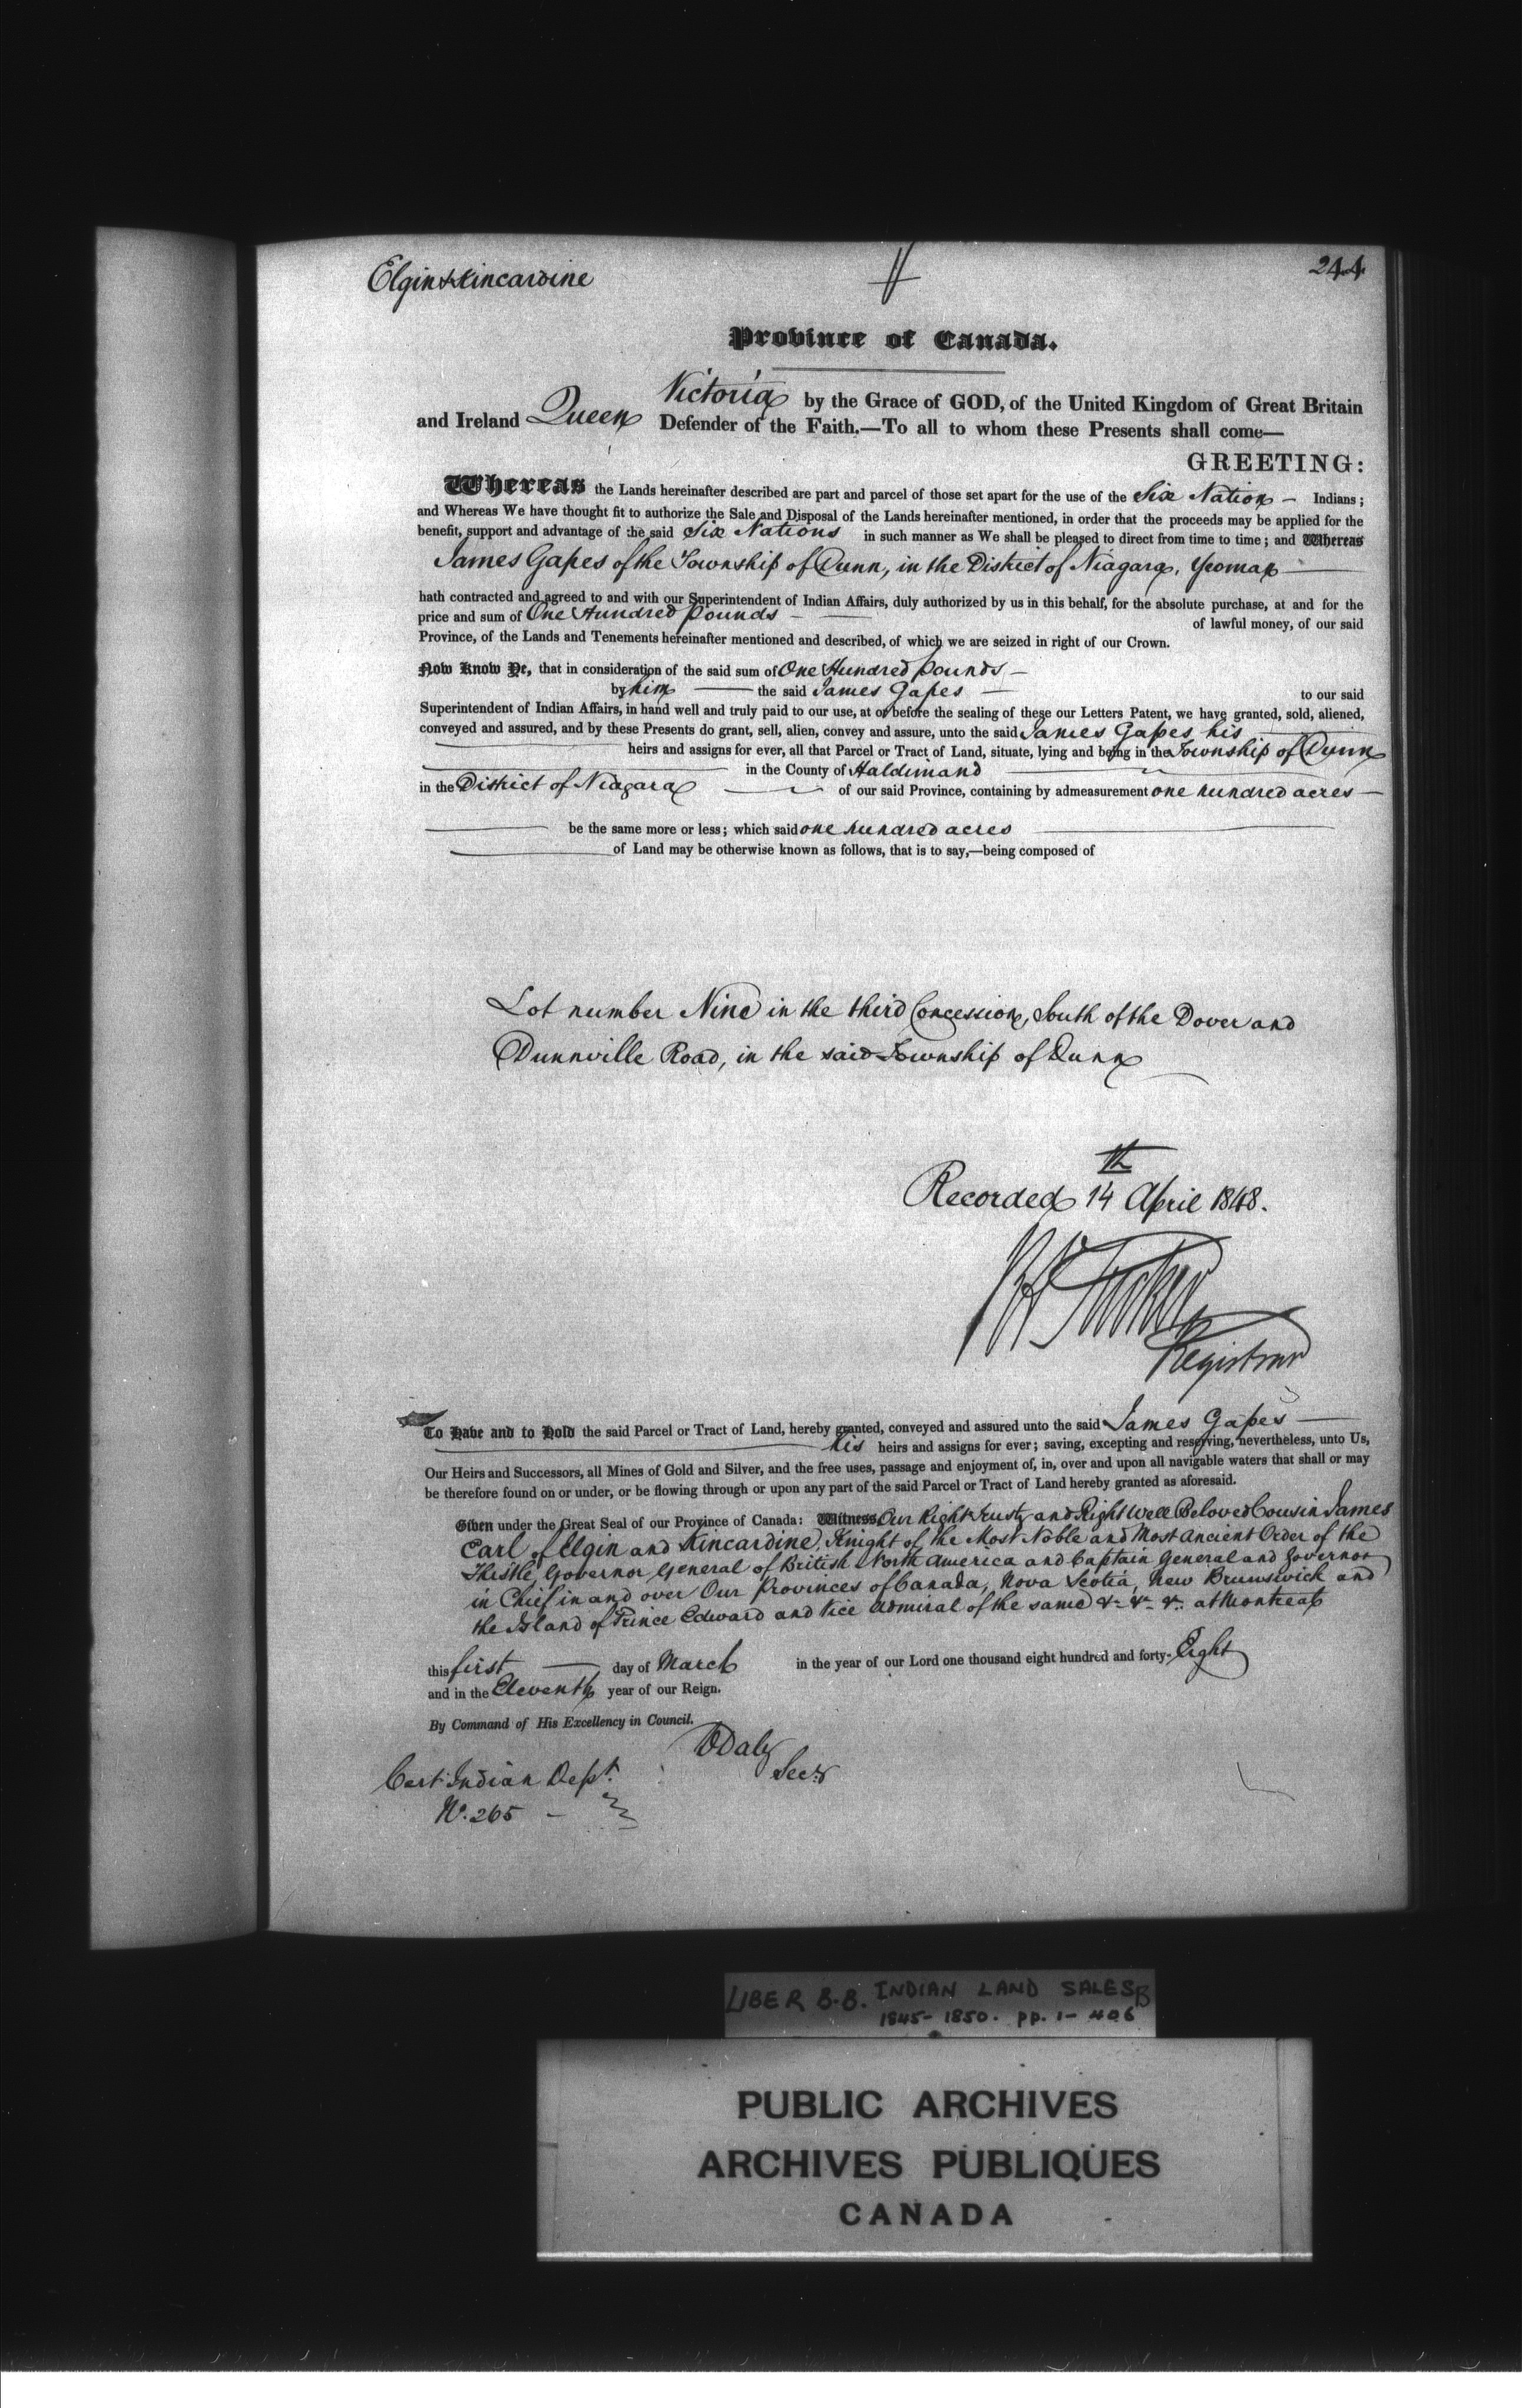 Elgin & Kincardine
244
Province of Canada.
Victoria by the Grace of GOD, of the United Kingdom of Great Britain
and Ireland Queen Defender of the Faith.—To all to whom these Presents shall come—
GREETING:
Whereas the Lands hereinafter described are part and parcel of those set apart for the use of the Six Nation – Indians;
and Whereas We have thought fit to authorize the Sale and Disposal of the Lands hereinafter mentioned, in order that the proceeds may be applied for the
benefit, support and advantage of the said Six Nations in such manner as We shall be pleased to direct from time to time; and Whereas
James Gapes of the Township of Dunn, in the District of Niagara, Yeoman
hath contracted and agreed to and with our Superintendent of Indian Affairs, duly authorized by us in this behalf, for the absolute purchase, at and for the
price and sum of One Hundred pounds – of lawful money, of our said
Province, of the Lands and Tenements hereinafter mentioned and described, of which we are seized in right of our Crown.
Now Know Ye, that in consideration of the said sum of One Hundred pounds –
by him — the said James Gapes — to our said
Superintendent of Indian Affairs, in hand well and truly paid to our use, at or before the sealing of these our Letters Patent, we have granted, sold, aliened,
conveyed and assured, and by these Presents do grant, sell, alien, convey and assure, unto the said James Gapes his
heirs and assigns for ever, all that Parcel or Tract of Land, situate, lying and being in the Township of Dunn
in the County of Haldimand
in the District of Niagara of our said Province, containing by admeasurement one hundred acres —
be the same more or less; which said one hundred acres
of Land may be otherwise known as follows, that is to say,—being composed of
Lot number Nine in the third Concession, South of the Dover and
Dunnville Road, in the said Township of Dunn
Recorded 14th April 1848.
Tucker
Registrar
To Have and to Hold the said Parcel or Tract of Land, hereby granted, conveyed and assured unto the said James Gapes —
his heirs and assigns for ever; saving, excepting and reserving, nevertheless, unto Us,
Our Heirs and Successors, all Mines of Gold and Silver, and the free uses, passage and enjoyment of, in, over and upon all navigable waters that shall or may
be therefore found on or under, or be flowing through or upon any part of the said Parcel or Tract of Land hereby granted as aforesaid.
Given under the Great Seal of our Province of Canada: Witness, Our Right Trusty and Right Well Beloved Cousin James
Earl of Elgin and Kincardine, Knight of the Most Noble and Most Ancient Order of the
Thistle, Governor General of British North America and Captain General and Governor
in Chief in and over Our Provinces of Canada, Nova Scotia, New Brunswick and
the Island of Prince Edward and Vice Admiral of the same &c &c &c. at Montreal
this first — day of March in the year of our Lord one thousand eight hundred and forty-Eight
and in the Eleventh year of our Reign.
By Command of His Excellency in Council.
D Daly
Secy
Cert Indian Dept.
No. 265 –
LIBER B.B. INDIAN LAND SALES B
1845-1850. pp. 1-406
PUBLIC ARCHIVES
ARCHIVES PUBLIQUES
CANADA